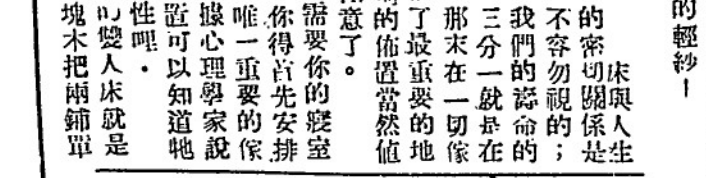 的輕紗—
床與人生
的密切關係是
不容勿視的；
我們的壽命的
三分一就是在
那末在一切傢
了最重要的地
的佈置當然值
意了。
需要你的寢室
你得首先安排
唯一重要的傢
據心理學家說
置可以知道牠
性哩．
的雙人床就是
塊木把兩鋪單